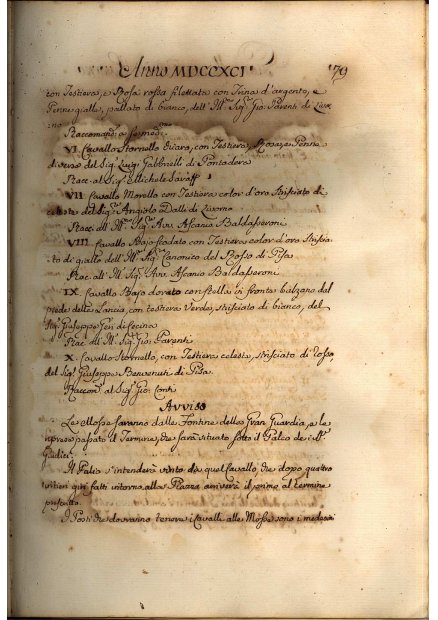 Anno MDCCXCI
79
con Testiera, e Rosa rossa filettata con Trina d'argento, e
Penne gialle, pallato di bianco, dell' Ill. Sig. Gio: Parenti di
Raccomand: a se med:
VI Cavallo Stornello chiaro, con Testiera, Rosa, e Penne
del Sig. Luigi Gabbrielli di Pontadera
Racc. al Sig. Michele
VII Cavallo Morello con Testiera color d'oro strisciato di
celeste del Sig. Angiolo Dalli di Livorno
Racc. all' Ill. Sig. Avv. Ascanio Baldasseroni
VIII Cavallo Bajo focato con Testiera color d'oro strisciato
di giallo dell' Ill. Sig. Canonico del Rosso di Pisa
Racc. all' Ill. Sig. Avv. Ascanio Baldasseroni
IX. Cavallo Bajo dorato con stella in fronte balzano del
piede della Lancia, con testiera Verde, strisciato di bianco, del
Sig. Giuseppe Geri di Cecina
Rac. all' Ill. Sig. Gio: Parenti
X. Cavallo Stornello, con Testiera celeste, strisciato di rosso,
del Sig. Giuseppe Benvenuti di Pisa.
Raccom. al Sig. Gio: Conti
Avviso
Le Mosse saranno dalle Fontine della Gran Guardia, e le
riprese passato il Termine, che sarà situato sotto il Palco de i SS.
Giudici.
Il Palio s'intenderà vinto da quel Cavallo, che dopo quattro
interi giri fatti intorno alla Piazza arriverà il primo al termine
prescritto.
I Posti che dovranno tenere i Cavalli alle Mosse sono i medesimi